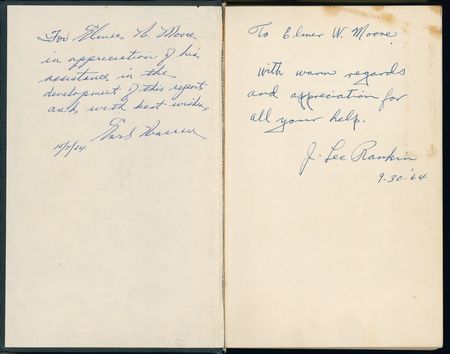 For Elmer W. Moore
in appreciation of his
assistance in the
development of this report
and with best wishes,
Earl Warren
10/2/64.
To Elmer W. Moore
with warm regards
and appreciation for
all your help.
J. Lee Rankin
9-30-'64